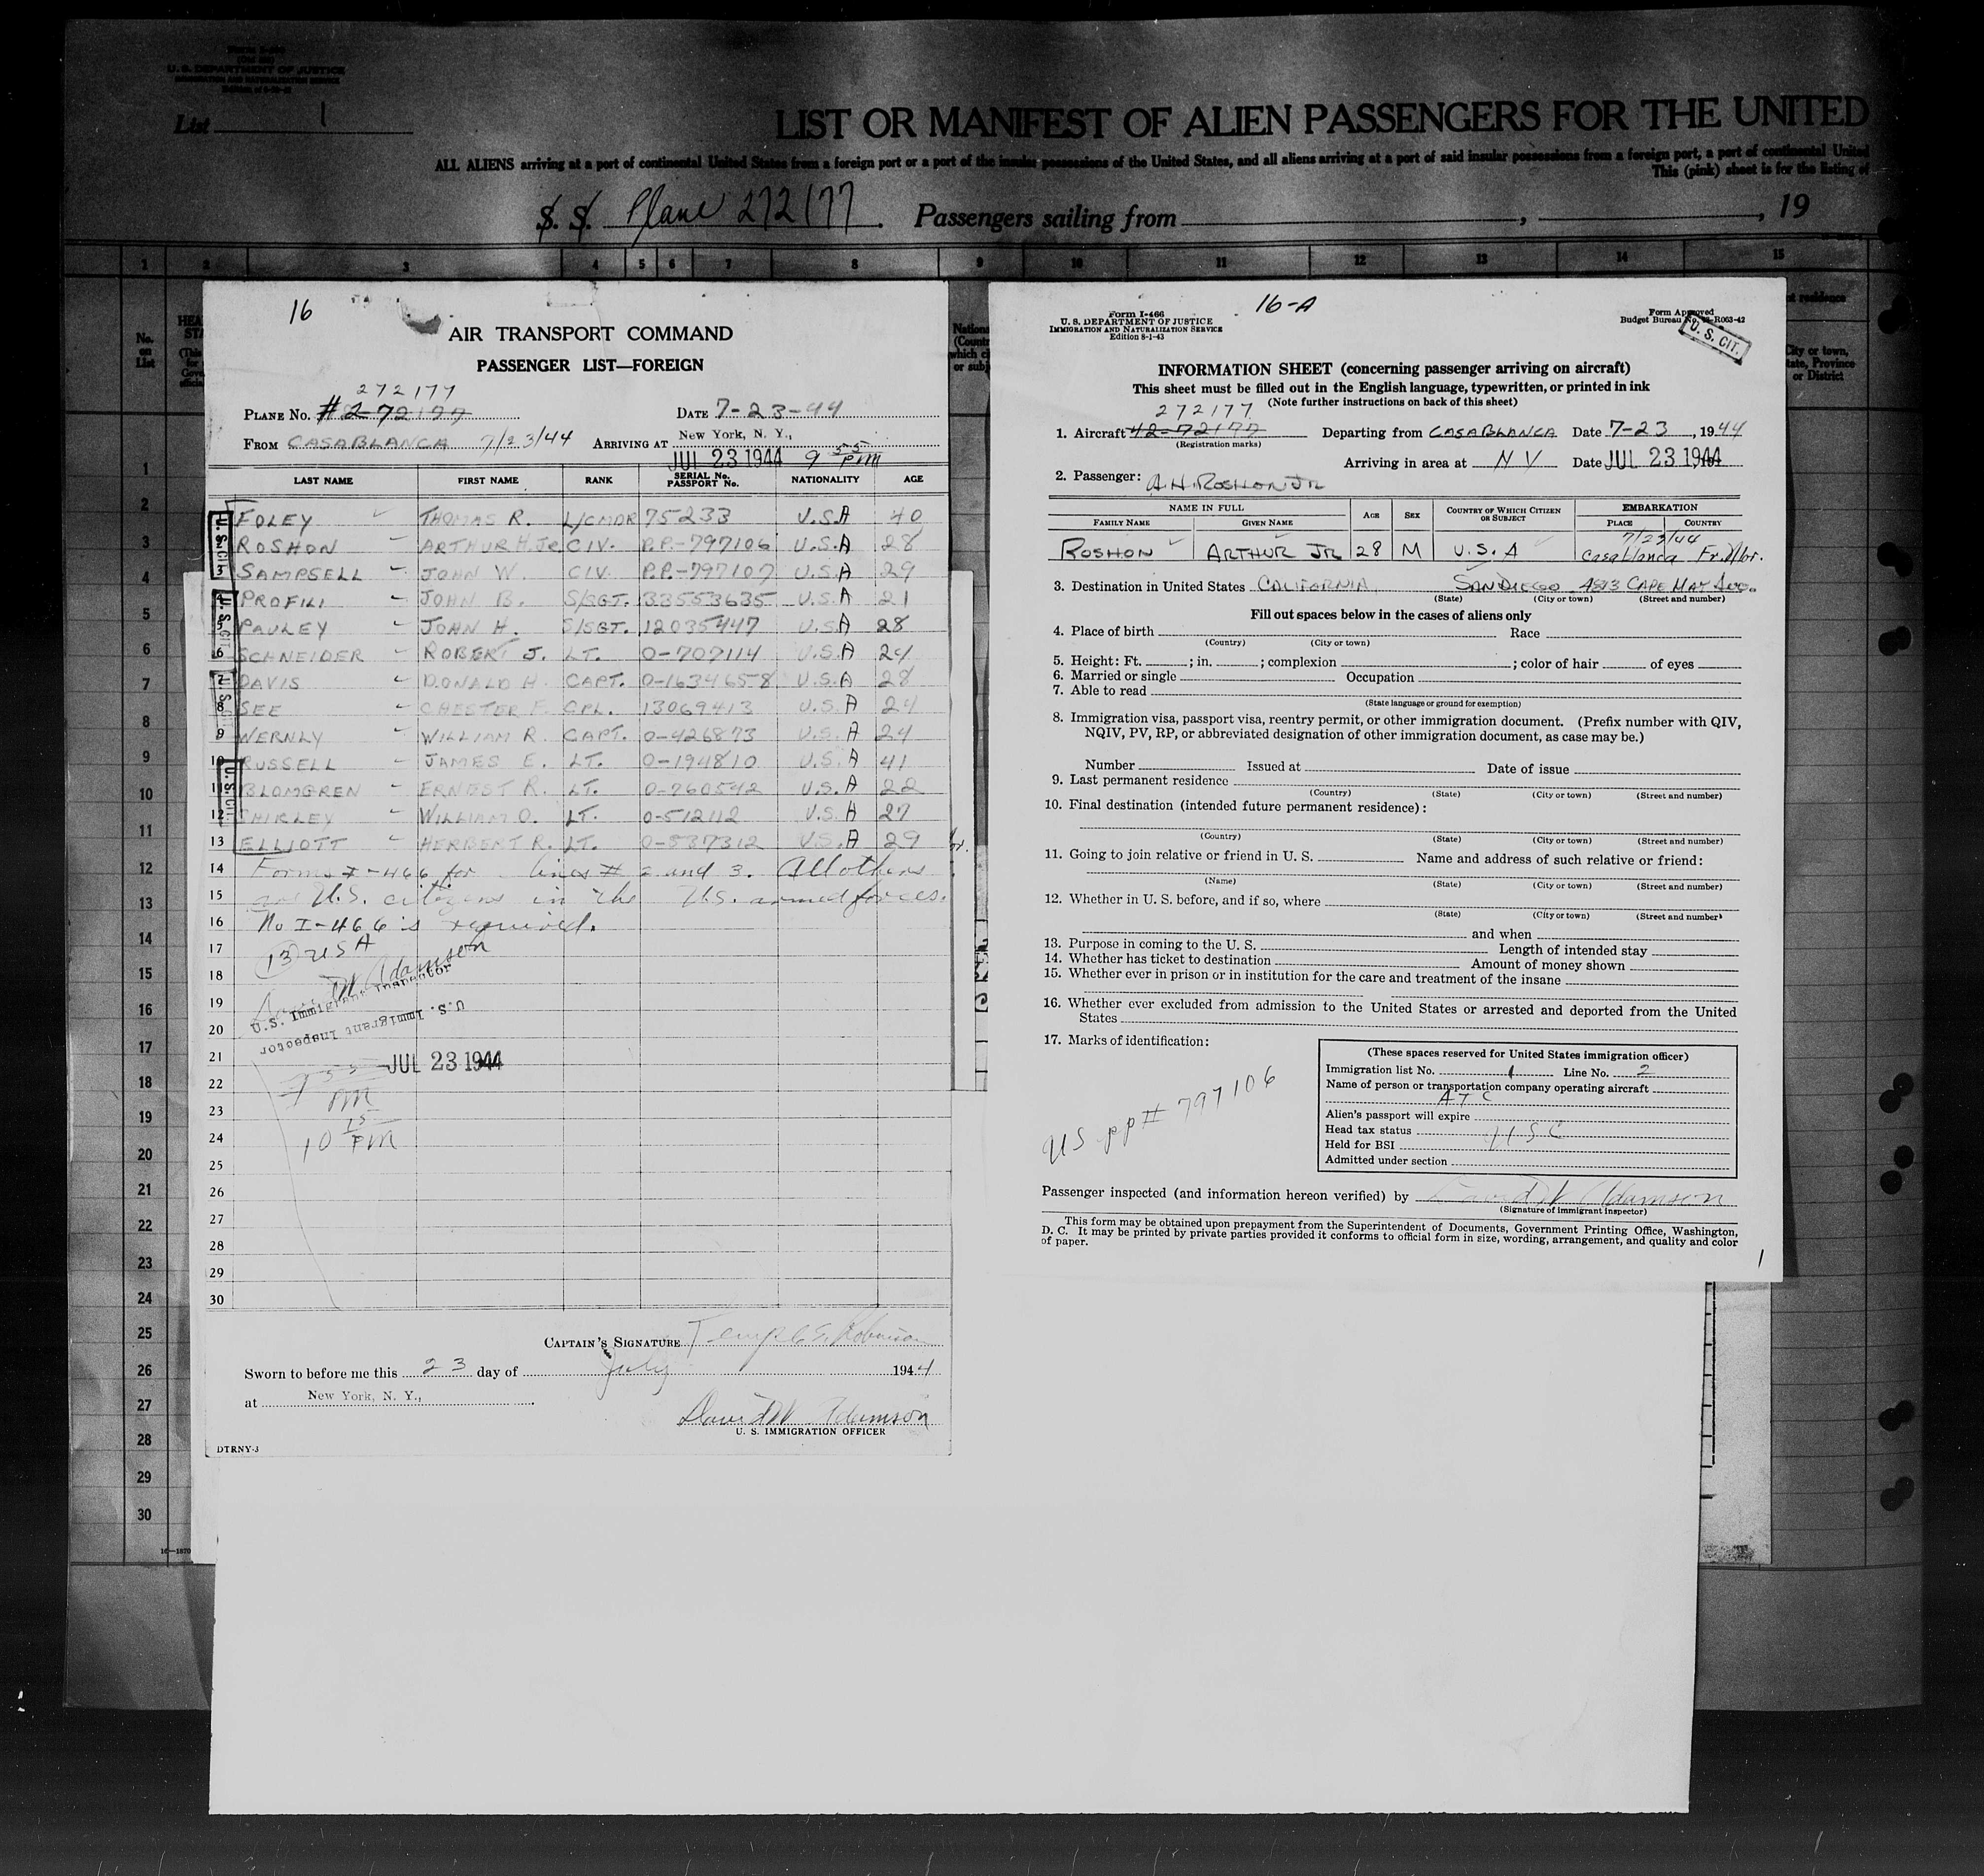 U. S. DEPARTMENT OF JUSTICE
IMMIGRATION AND NATURALIZATION SERVICE
List 1
LIST OR MANIFEST OF ALIEN PASSENGERS FOR THE UNITED
ALL ALIENS arriving at a port of continental United States from a foreign port or a port of the insular possessions of the United States, and all aliens arriving at a port of said insular possessions from a foreign port, a port of continental United
This (pink) sheet is for the listing of
S. S. Plane 272177. Passengers sailing from , , 19
1 2 3 4 5 6 7 8 9 10 11 12 13 14 15
No. on List
16
AIR TRANSPORT COMMAND
PASSENGER LIST—FOREIGN
272177
PLANE No. #272177 DATE 7-23-44
FROM CASABLANCA 7/23/44 ARRIVING AT New York, N. Y.,
JUL 23 1944 9 55 PM
LAST NAME FIRST NAME RANK SERIAL No. PASSPORT No. NATIONALITY AGE
FOLEY THOMAS R. L/CMDR 75233 U.S.A 40
ROSHON ARTHUR H. JR CIV. P.P.-797106 U.S.A 28
3 SAMPSELL JOHN W. CIV. P.P.-797107 U.S.A 29
PROFILI JOHN B. S/SGT. 33553635 U.S.A 21
5 PAULEY JOHN H. S/SGT. 12035447 U.S.A 28
6 SCHNEIDER ROBERT J. LT. O-707114 U.S.A 24
7 DAVIS DONALD H. CAPT. O-1634658 U.S.A 28
8 SEE CHESTER F. CPL. 13069413 U.S.A 24
9 WERNLY WILLIAM R. CAPT. O-426873 U.S.A 24
10 RUSSELL JAMES E. LT. O-194810 U.S.A 41
11 BLOMGREN ERNEST R. LT. O-760542 U.S.A 22
12 SHIRLEY WILLIAM O. LT. O-512112 U.S.A 27
13 ELLIOTT HERBERT R. LT. O-887312 U.S.A 29
14 Forms I-466 for lines # 2 and 3. All others
15 are U.S. citizens in the U.S. armed forces.
16 No I-466 is required.
17 13 USA
18 David W Adamson
19 U.S. Immigrant Inspector
20 U.S. Immigrant Inspector
21 JUL 23 1944
22 9 55
23 PM
24 10 15 PM
25
26
27
28
29
30
CAPTAIN'S SIGNATURE Temple E. Robinson
Sworn to before me this 23 day of July 1944
at New York, N. Y.,
David W Adamson
U. S. IMMIGRATION OFFICER
DTRNY-3
16-A
Form I-466
U. S. DEPARTMENT OF JUSTICE
IMMIGRATION AND NATURALIZATION SERVICE
Edition 8-1-43
Form Approved
Budget Bureau No. -R063-42
U. S. CIT.
INFORMATION SHEET (concerning passenger arriving on aircraft)
This sheet must be filled out in the English language, typewritten, or printed in ink
(Note further instructions on back of this sheet)
272177
1. Aircraft 42-72177 Departing from CASABLANCA Date 7-23, 1944
(Registration marks)
Arriving in area at NY Date JUL 23 1944
2. Passenger: A.H. ROSHON JR
NAME IN FULL AGE SEX COUNTRY OF WHICH CITIZEN OR SUBJECT EMBARKATION
FAMILY NAME GIVEN NAME PLACE COUNTRY
7/23/44
ROSHON ARTHUR JR 28 M U.S.A Casablanca Fr. Mor.
3. Destination in United States CALIFORNIA SAN DIEGO 4813 CAPE MAY AVE.
(State) (City or town) (Street and number)
Fill out spaces below in the cases of aliens only
4. Place of birth Race
(Country) (City or town)
5. Height: Ft. ; in. ; complexion ; color of hair of eyes
6. Married or single Occupation
7. Able to read
(State language or ground for exemption)
8. Immigration visa, passport visa, reentry permit, or other immigration document. (Prefix number with QIV,
NQIV, PV, RP, or abbreviated designation of other immigration document, as case may be.)
Number Issued at Date of issue
9. Last permanent residence
(Country) (State) (City or town) (Street and number)
10. Final destination (intended future permanent residence):
(Country) (State) (City or town) (Street and number)
11. Going to join relative or friend in U. S. Name and address of such relative or friend:
(Name) (State) (City or town) (Street and number)
12. Whether in U. S. before, and if so, where
(State) (City or town) (Street and number)
and when
13. Purpose in coming to the U. S. Length of intended stay
14. Whether has ticket to destination Amount of money shown
15. Whether ever in prison or in institution for the care and treatment of the insane
16. Whether ever excluded from admission to the United States or arrested and deported from the United
States
17. Marks of identification:
US pp# 797106
(These spaces reserved for United States immigration officer)
Immigration list No. 1 Line No. 2
Name of person or transportation company operating aircraft
ATC
Alien's passport will expire
Head tax status USC
Held for BSI
Admitted under section
Passenger inspected (and information hereon verified) by David W Adamson
(Signature of immigrant inspector)
This form may be obtained upon prepayment from the Superintendent of Documents, Government Printing Office, Washington,
D. C. It may be printed by private parties provided it conforms to official form in size, wording, arrangement, and quality and color
of paper.
1